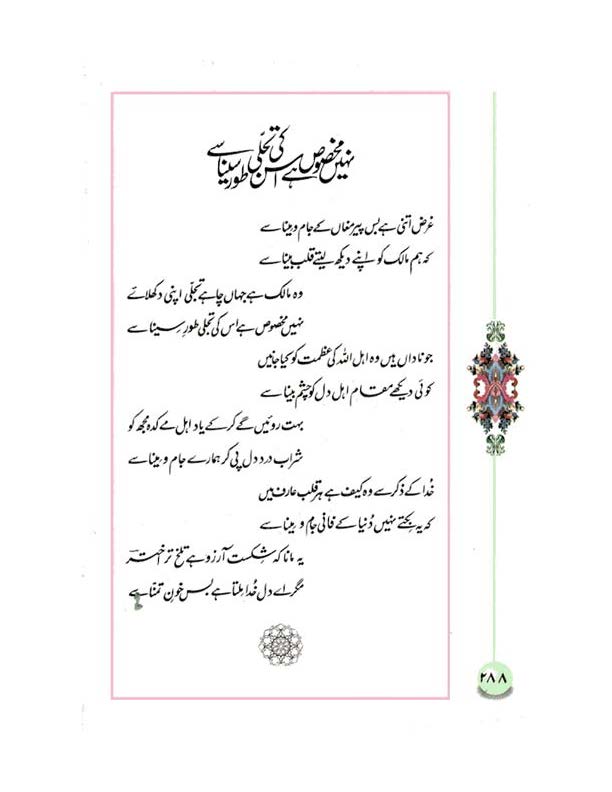 نہیں مخصوص ہے اس کی تجلّی طور سینا سے
غرض اتنی ہے بس پیر مغاں کے جام و مینا سے
کہ ہم مالک کو اپنے دیکھ لیتے قلب بینا سے
وہ مالک ہے جہاں چاہے تجلّی اپنی دکھلائے
نہیں مخصوص ہے اس کی تجلّی طورِ سینا سے
جو ناداں ہیں وہ اہل اللہ کی عظمت کو کیا جانیں
کوئی دیکھے مقام اہل دل کو چشم بینا سے
بہت روئیں گے کر کے یاد اہل مے کدہ مجھ کو
شراب درد دل پی کر ہمارے جام و مینا سے
خُدا کے ذکر سے وہ کیف ہے ہر قلب عارف میں
کہ یہ بکتے نہیں دُنیا کے فانی جام و مینا سے
یہ مانا کہ شکست آرزو ہے تلخ تر اختر
مگر اے دل خُدا ملتا ہے بس خونِ تمنّا سے
۲۸۸